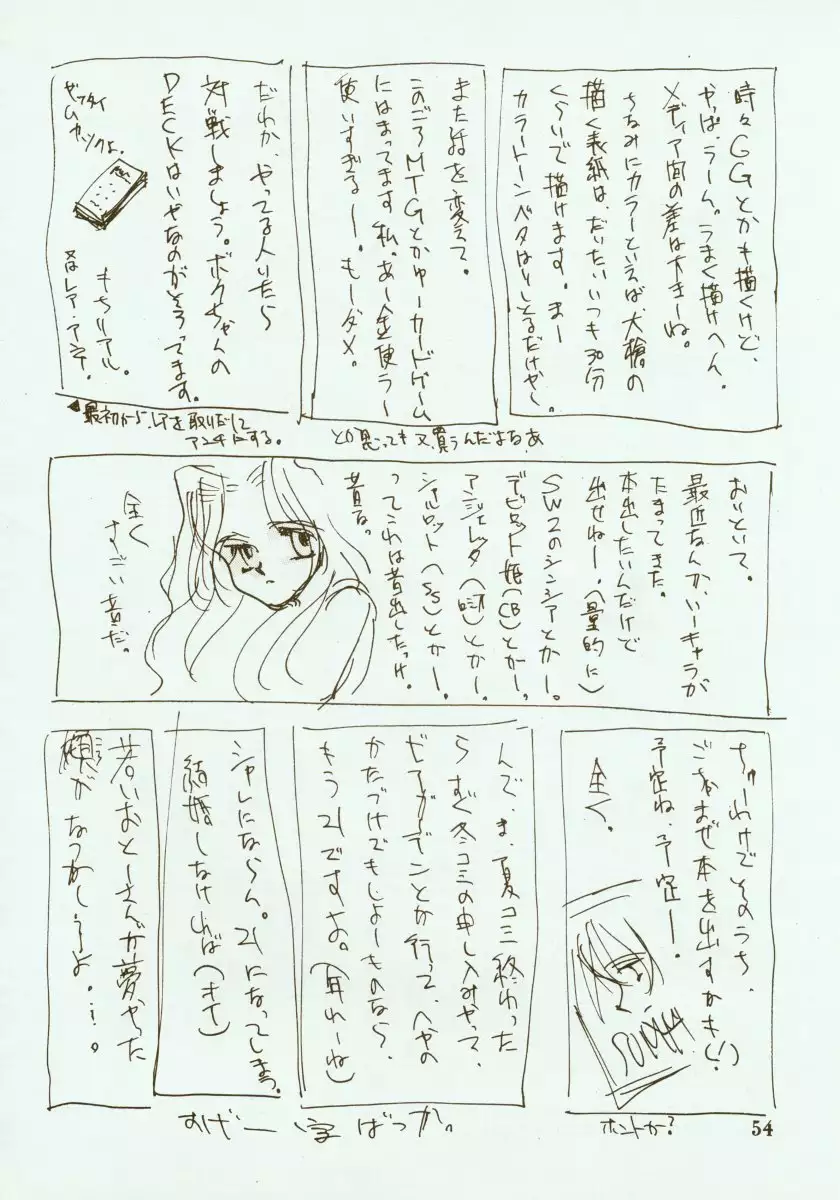 時々GGとかも描くけど、
やっぱ、うーん。うまく描けへん。
メディア間の差は大きーね。
ちなみにカラーといえば、大槍の
描く表紙は、だいたいいつも30分
くらいで描けます。まー
カラートーンベタはりしとるだけやし
また話を変えて。
このごろMTGとかゆーカードゲーム
にはまってます私。あー金使うー
使いすぎるー。もーダメ。
とか思っても又、買うんだよなぁ
だれか、やってる人いたら
対戦しましょう。ボクちゃんの
DECKはいやなのがそろってます。
もちリアル。
又はレア・アンテ。
最初から、レアを取りだして
アンテにする。
おいといて。
最近なんか、いーキャラが
たまってきた。
本出したいんだけで
出せねー。(量的に)
SW2のシンシアとかー。
デビロット姫(CB)とかー。
アンジェレッタ()とかー。
シャルロット(SS)とかー。
ってこれは昔出したっけ。
昔る。
全く
すごい昔だ。
ちゅーわけでそのうち、
ごちゃまぜ本を出すかも(!)
予定ね、予定ー。
全く。
ホントか?
んで、ま、夏コミ終わった
らすぐ冬コミの申し込みやって、
ビアガーデンとか行って、へやの
かたづけでもしよーものなら、
もう21ですな。(早いーね)
シャレにならん。21になってしまう。
結婚しなければ(オイ)
若いおとーさんが夢やった
頃がなつかしいよ。…。
すげー 字ばっか。
54